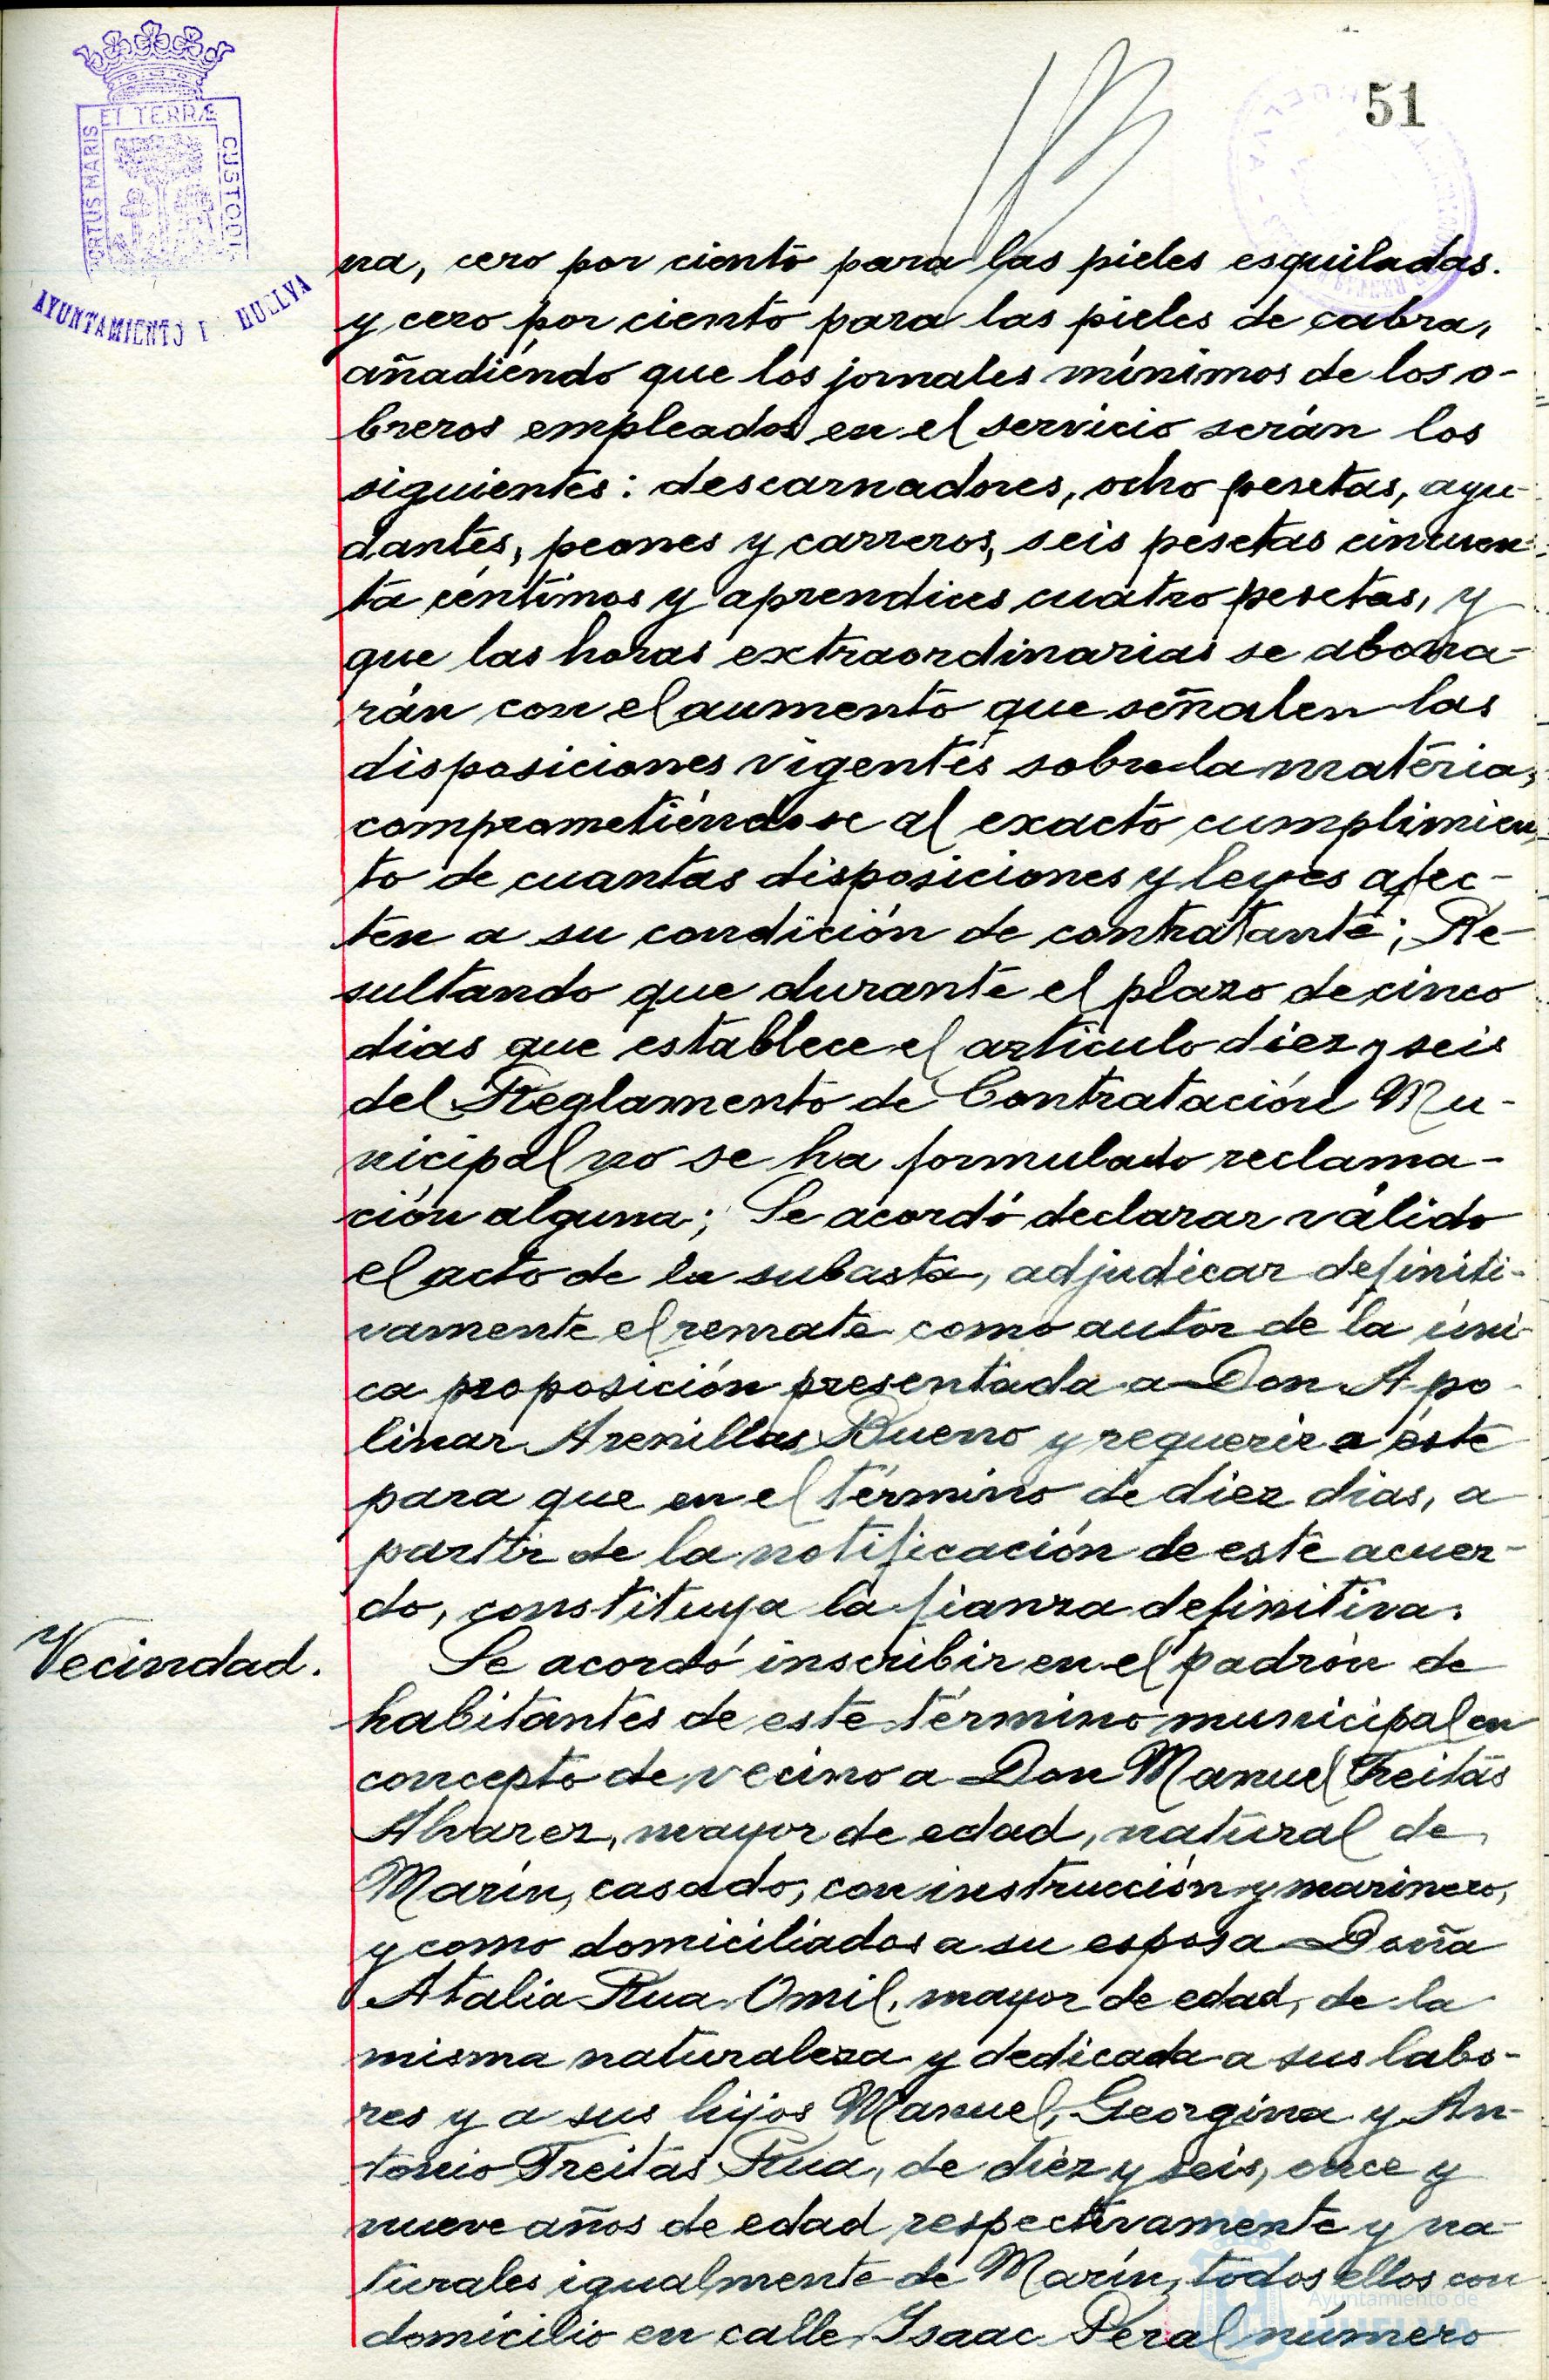 51
ET TERRÆ
ORTUS MARIS
CUSTODI
AYUNTAMIENTO HUELVA
na, cero por ciento para las pieles esquiladas.
y cero por ciento para las pieles de cabra,
añadiéndo que los jornales mínimos de los o-
breros empleados en el servicio serán los
siguientes: descarnadores, ocho pesetas, ayu-
dantes, peones y carreros, seis pesetas cincuen-
ta céntimos y aprendices cuatro pesetas, y
que las horas extraordinarias se abona-
rán con el aumento que señalen las
disposiciones vigentes sobre la materia,
comprometiéndose al exacto cumplimien-
to de cuantas disposiciones y leyes afec-
ten a su condición de contratante; Re-
sultando que durante el plazo de cinco
dias que establece el artículo diez y seis
del Reglamento de Contratación Mu-
nicipal no se ha formulado reclama-
ción alguna; Se acordó declarar válido
el acto de la subasta, adjudicar definiti-
vamente el remate como autor de la úni-
ca proposición presentada a Don Apo-
linar Arenillas Bueno y requerir a éste
para que en el término de diez dias, a
partir de la notificación de este acuer-
do, constituya la fianza definitiva.
Vecindad. Se acordó inscribir en el padrón de
habitantes de este término municipal en
concepto de vecino a Don Manuel Freitas
Alvarez, mayor de edad, natural de
Marín, casado, con instrucción y marinero,
y como domiciliados a su esposa Doña
Atalia Rua Omil, mayor de edad, de la
misma naturaleza y dedicada a sus labo-
res y a sus hijos Manuel, Georgina y An-
tonio Freitas Rua, de diez y seis, once y
nueve años de edad respectivamente y na-
turales igualmente de Marín, todos ellos con
domicilio en calle Isaac Peral número
Ayuntamiento de
HUELVA